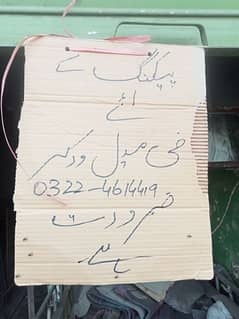 پیکنگ کے
لئے
فی میل ورکر
0322-4614419
ضرورت
ہے